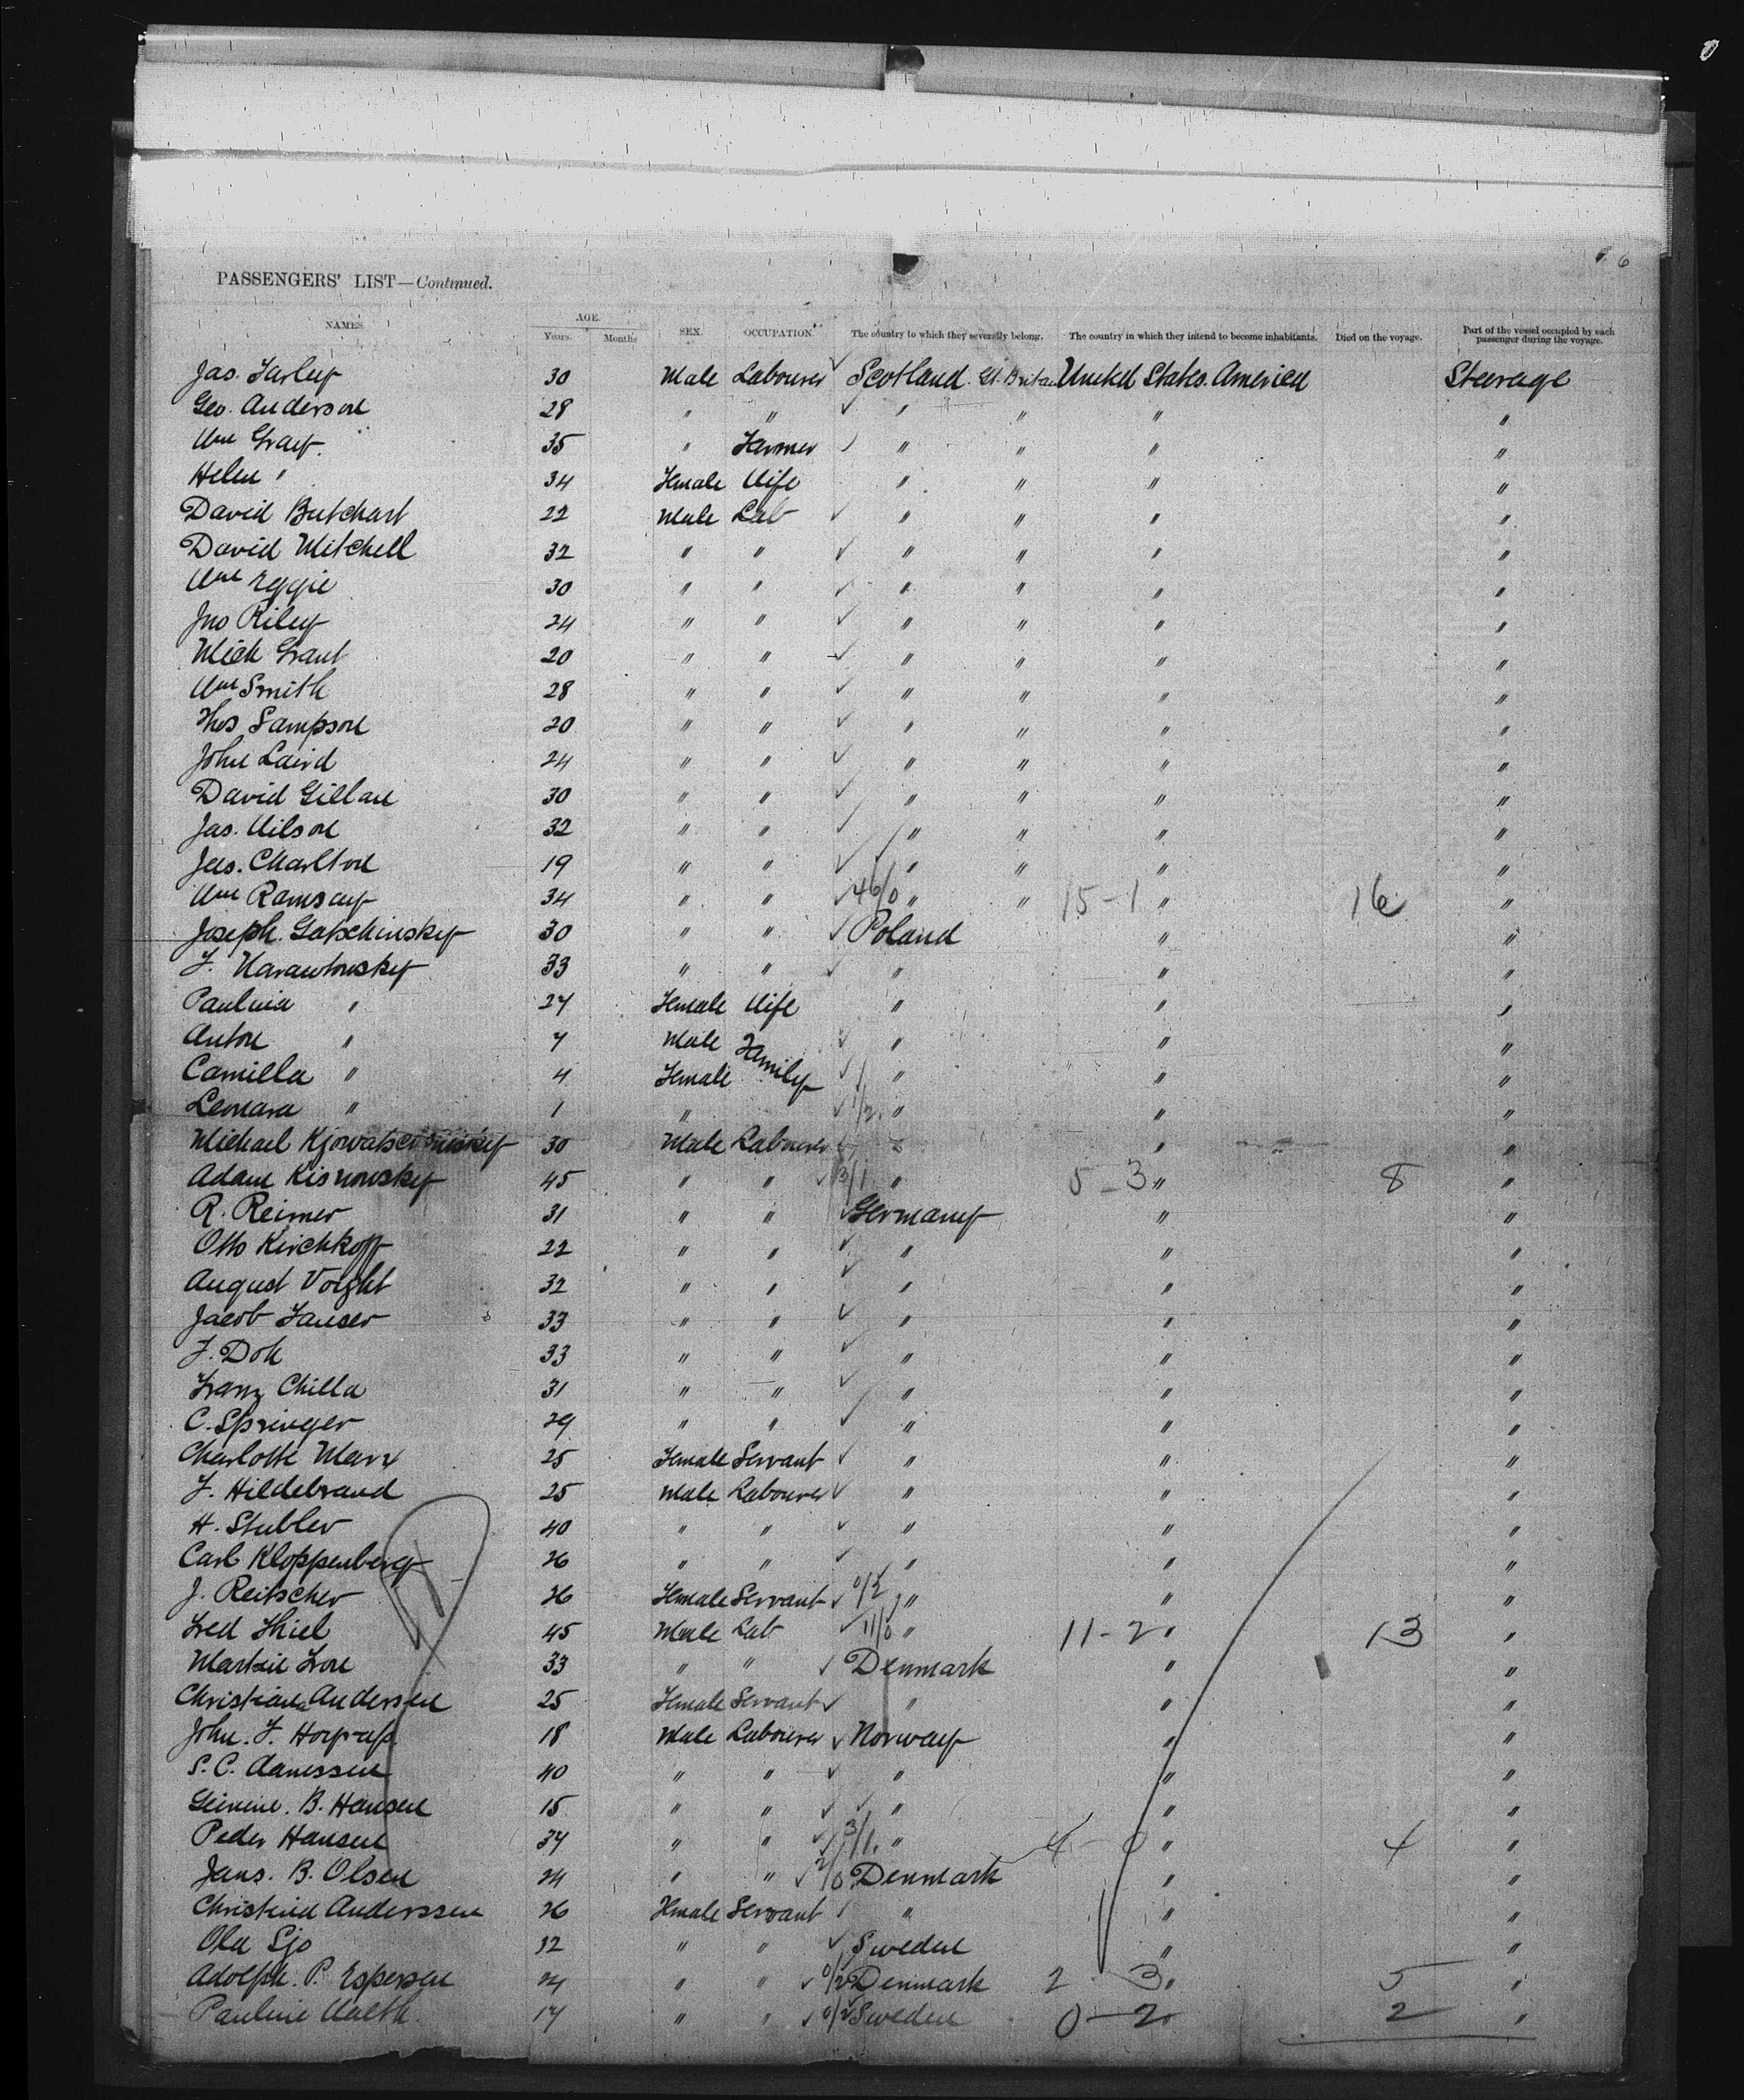 6
PASSENGERS' LIST—Continued.
NAMES. AGE. Years. Months SEX. OCCUPATION. The country to which they severally belong. The country in which they intend to become inhabitants. Died on the voyage. Part of the vessel occupied by each passenger during the voyage.
Jas. 30 Male Labourer Scotland Gt. Britain United States America Steerage
Geo. Anderson 28 " " " " " "
Wm Gray 35 " Farmer " " " "
Helen " 34 Female Wife " " " "
David Butchart 22 Male Lab " " " "
David Mitchell 32 " " " " " "
Wm Eggie 30 " " " " " "
Jno Riley 24 " " " " " "
Mick Grant 20 " " " " " "
Wm Smith 28 " " " " " "
Thos Sampson 20 " " " " " "
John Laird 24 " " " " " "
David Gillan 30 " " " " " "
Jas. Wilson 32 " " " " " "
Jas. Charlton 19 " " " " " "
Wm Ramsay 34 " " 46/0 " " 15-1 " 16 "
Joseph. Gatschinsky 30 " " Poland " "
33 " " " " "
Paulina " 27 Female Wife " " "
Anton " 7 Male Family " " "
Camilla " 4 Female " " "
" 1 " 1/2 " " "
Michael 30 Male Labourer " " "
Adam Kisnowsky 45 " " 3/1 " 5-3 " 8 "
R. Reimer 31 " " Germany " "
Otto Kirchkoff 22 " " " " "
August Voight 32 " " " " "
Jacob 33 " " " " "
33 " " " " "
Franz Chilla 31 " " " " "
C. Springer 29 " " " " "
Charlotte Marx 25 Female Servant " " "
F. Hildebrand 25 Male Labourer " " "
H. Stubler 40 " " " " "
Carl Kloppenberg 26 " " " " "
J. Reitscher 26 Female Servant 0/2 " " "
Fred Thiel 45 Male Lab 11/0 " 11-2 " 13 "
33 " " Denmark " "
Christiane Andersen 25 Female Servant " " "
John. F. 18 Male Labourer Norway " "
S. C. Aanessen 40 " " " " "
B. Hansen 15 " " " " "
Peder Hansen 37 " " 3/1. " 4-0 " 4 "
Jans. B. Olsen 24 " " 2/0 Denmark " "
Christine Anderssen 26 Female Servant " " "
Ola Sjo 32 " " Sweden " "
Adolph. P. Espersen 24 " " 0/2 Denmark 2 3 " 5 "
Pauline Walth 17 " " 0/2 Sweden 0-2 " 2 "